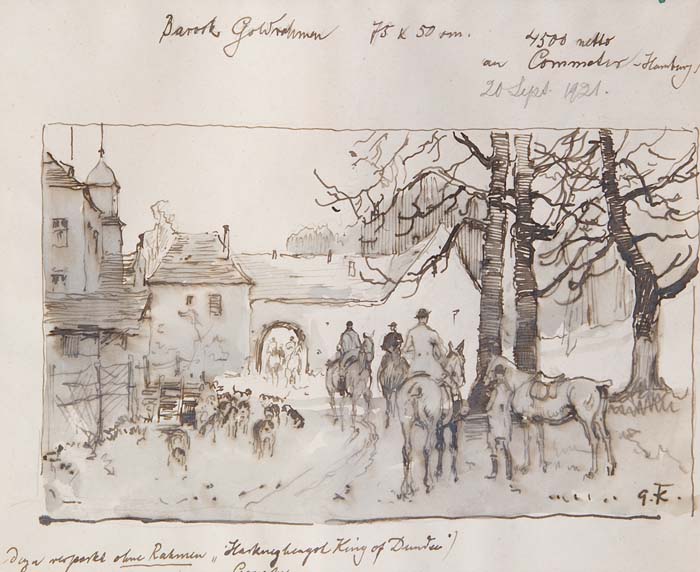 Barock Goldrahmen 75 x 50 cm. 4500 netto
an Commeter-Hamburg
20 Sept. 1921.
G.K.
verpackt ohne Rahmen „ King of Dundee")